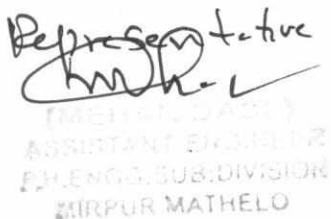 Representative
ASSISTANT ENGINEER
P.H.ENGG:SUB:DIVISION
MIRPUR MATHELO